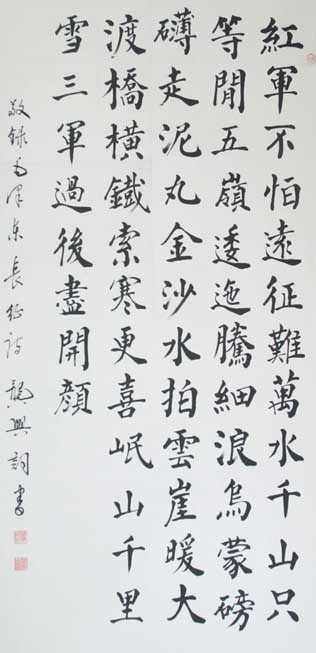 紅軍不怕遠征難萬水千山只
等閒五嶺逶迤騰細浪烏蒙磅
礴走泥丸金沙水拍雲崖暖大
渡橋橫鐵索寒更喜岷山千里
雪三軍過後盡開顏
敬錄毛澤東長征詩 龔興書